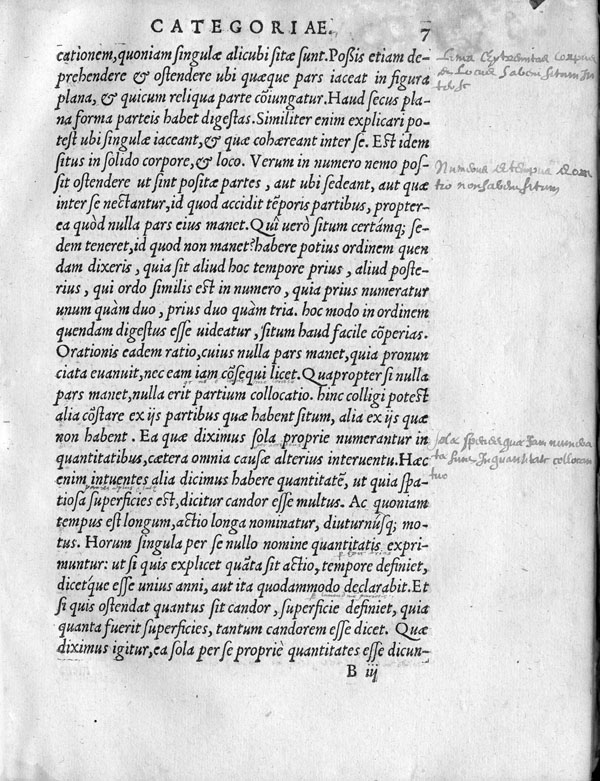 CATEGORIAE. 7
cationem, quoniam singulæ alicubi sitæ sunt. Possis etiam de-
prehendere & ostendere ubi quæque pars iaceat in figura
plana, & quicum reliqua parte cõiungatur. Haud secus pla-
na forma parteis habet digestas. Similiter enim explicari po-
test ubi singulæ iaceant, & quæ cohæreant inter se. Est idem
situs in solido corpore, & loco. Verum in numero nemo pos-
sit ostendere ut sint positæ partes, aut ubi sedeant, aut quæ
inter se nectantur, id quod accidit tẽporis partibus, propter-
ea quòd nulla pars eius manet. Quî uerò situm certámq; se-
dem teneret, id quod non manet? habere potius ordinem quen
dam dixeris, quia sit aliud hoc tempore prius, aliud poste-
rius, qui ordo similis est in numero, quia prius numeratur
unum quàm duo, prius duo quàm tria. hoc modo in ordinem
quendam digestus esse uideatur, situm haud facile cõperias.
Orationis eadem ratio, cuius nulla pars manet, quia pronun
ciata euanuit, nec eam iam cõsequi licet. Quapropter si nulla
pars manet, nulla erit partium collocatio. hinc colligi potest
alia cõstare ex ijs partibus quæ habent situm, alia ex ijs quæ
non habent. Ea quæ diximus sola proprie numerantur in
quantitatibus, cætera omnia causæ alterius interuentu. Hæc
enim intuentes alia dicimus habere quantitatẽ, ut quia spa-
tiosa superficies est, dicitur candor esse multus. Ac quoniam
tempus est longum, actio longa nominatur, diuturnúsq; mo-
tus. Horum singula per se nullo nomine quantitatis expri-
muntur: ut si quis explicet quãta sit actio, tempore definiet,
dicetq́ue esse unius anni, aut ita quodammodo declarabit. Et
si quis ostendat quantus sit candor, superficie definiet, quia
quanta fuerit superficies, tantum candorem esse dicet. Quæ
diximus igitur, ea sola per se propriè quantitates esse dicun-
B iij